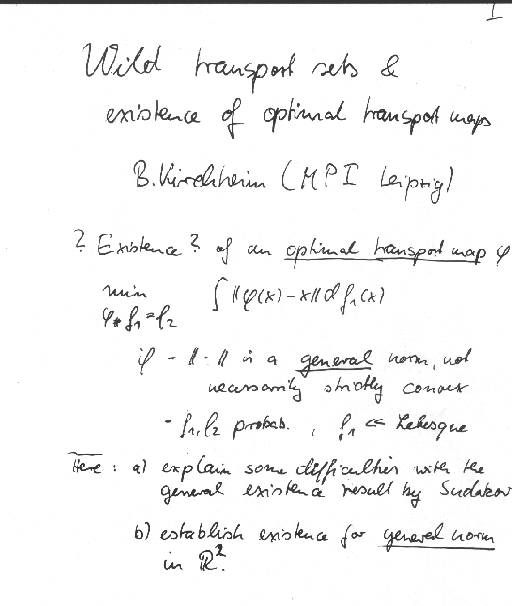 I
Wild transport sets &
existence of optimal transport maps
B. Kirchheim (MPI Leipzig)
? Existence? of an optimal transport map φ
min ∫ ||φ(x) - x|| d f₁(x)
φ# f₁ = f₂
if - ||·|| is a general norm, not
necessarily strictly convex
- f₁, f₂ probab. , f₁ << Lebesgue
Here: a) explain some difficulties with the
general existence result by Sudakov
b) establish existence for general norm
in ℝ².